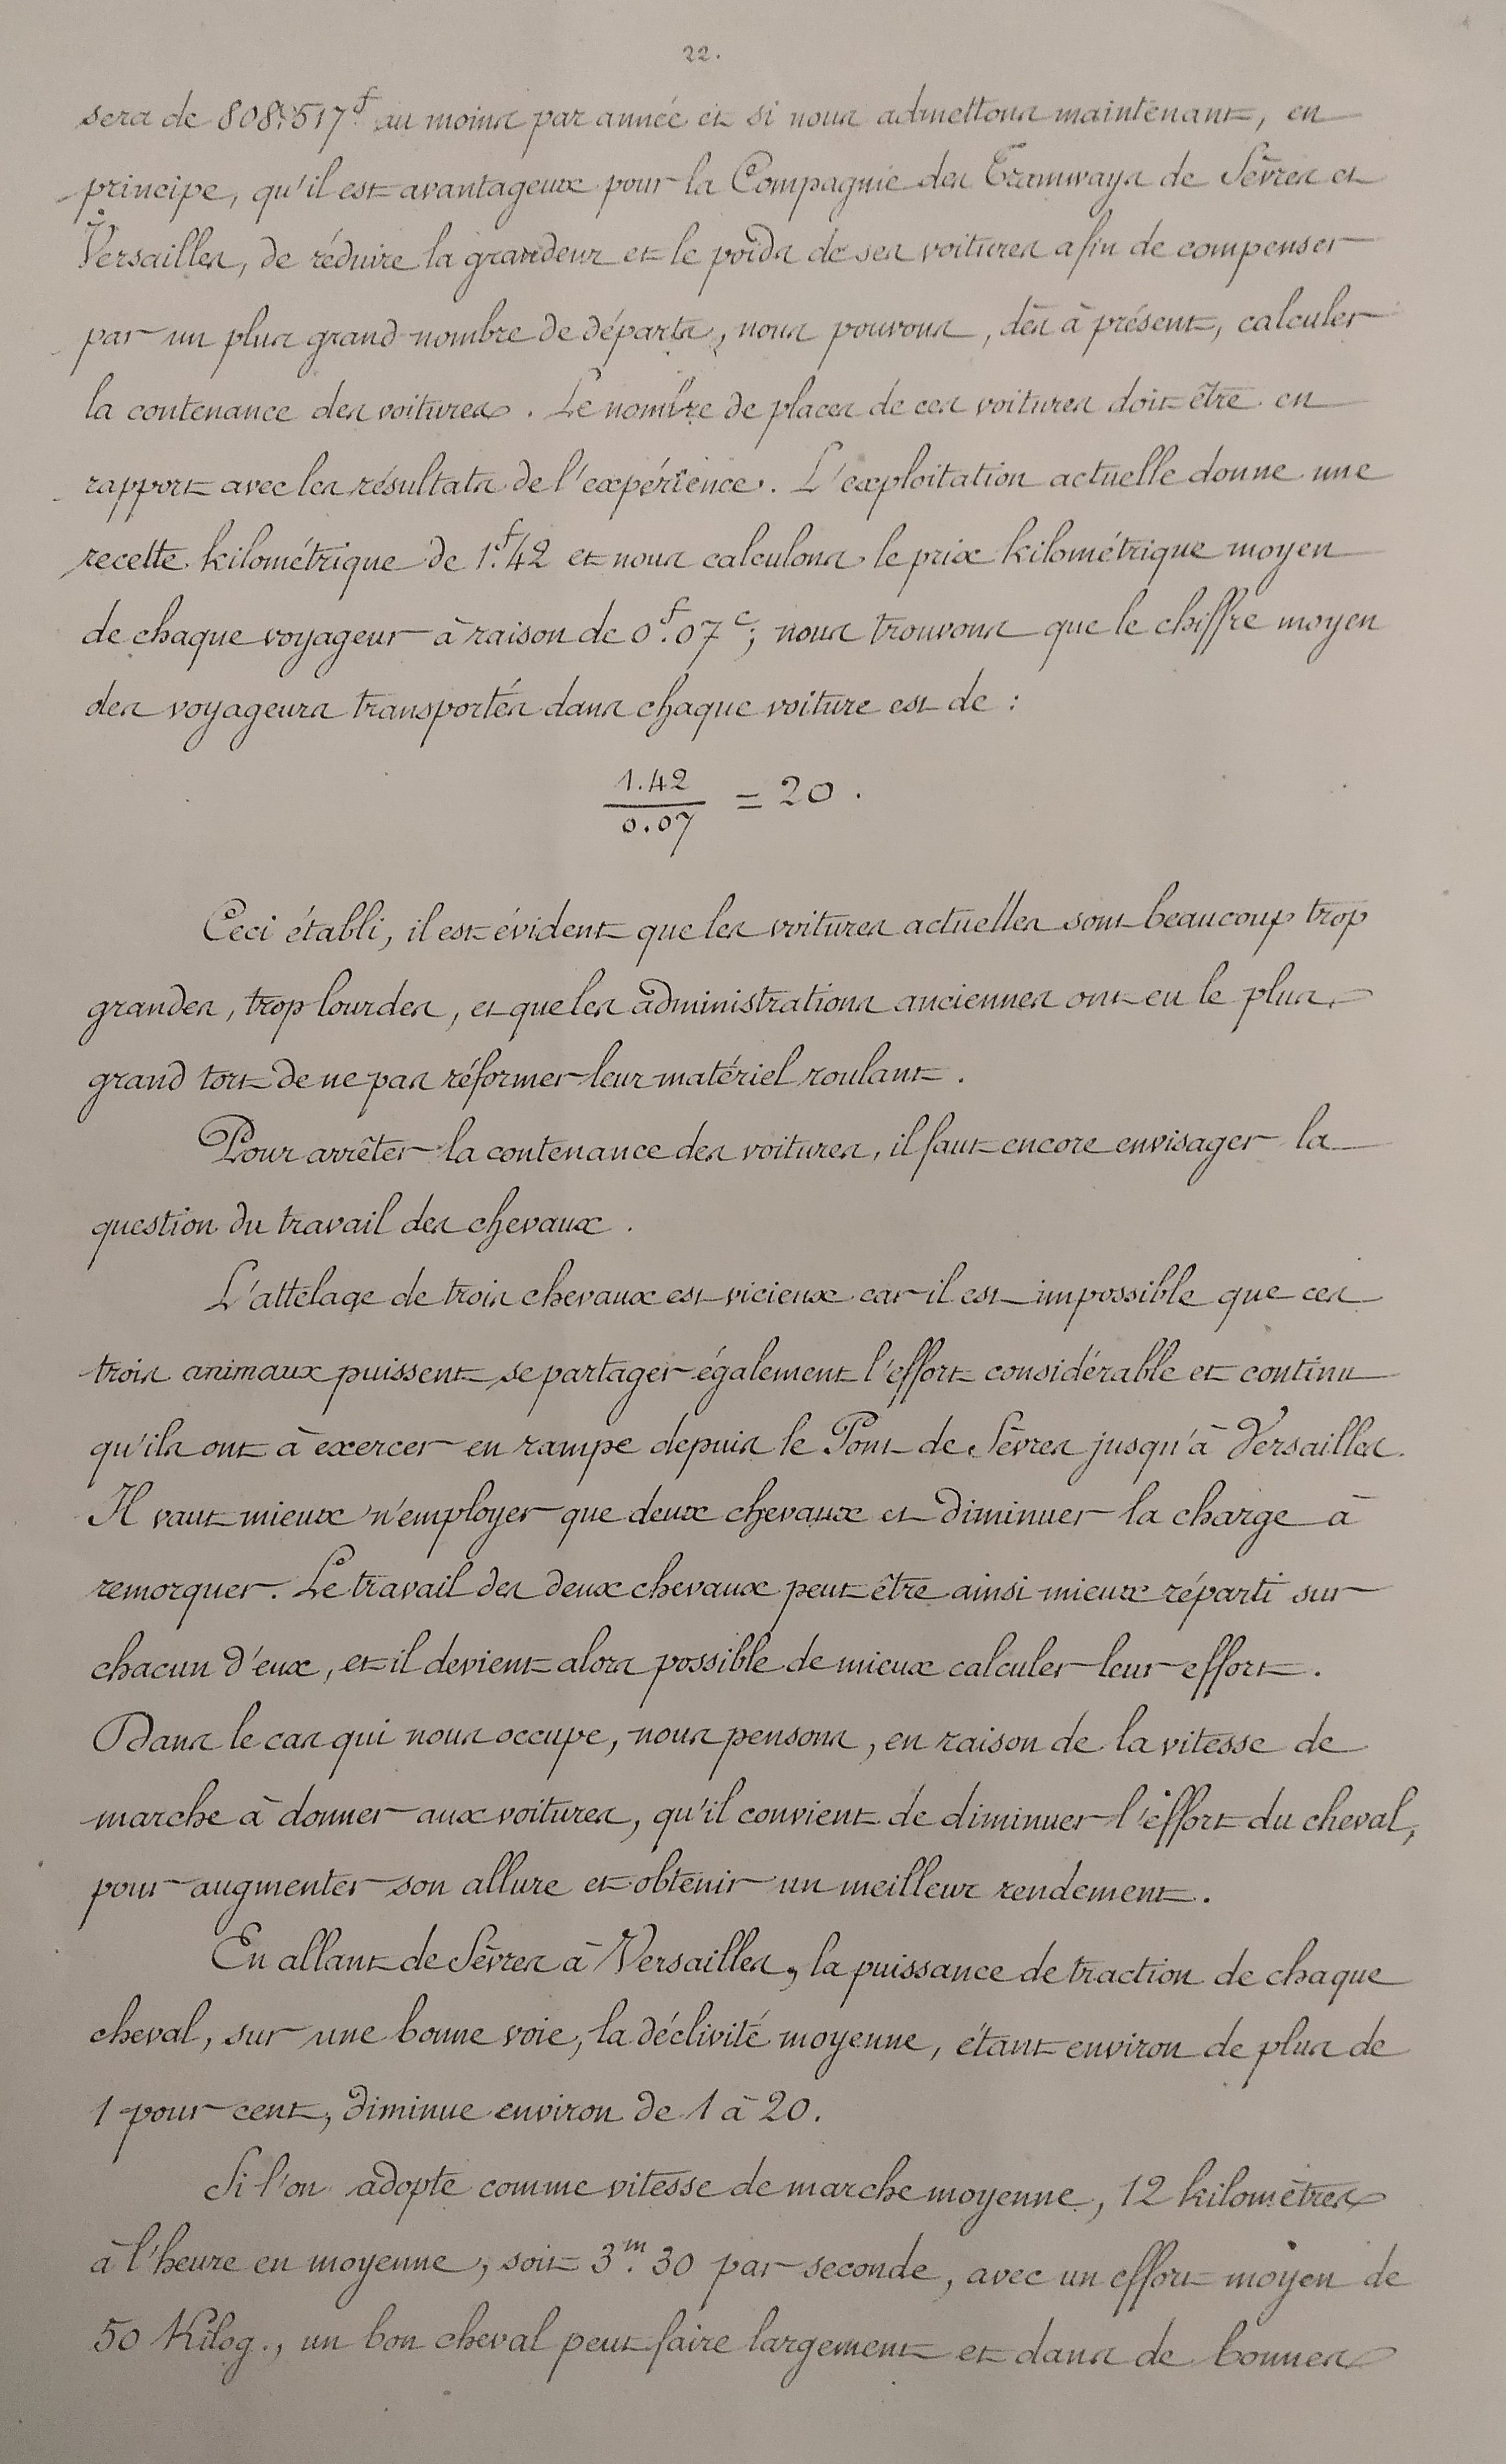 22.
sera de 808.517f. au moins par année et si nous admettons maintenant, en
principe, qu'il est avantageux pour la Compagnie des Tramways de Sèvres et
Versailles, de réduire la grandeur et le poids de ses voitures afin de compenser
par un plus grand nombre de départs, nous pouvons, dès à présent, calculer
la contenance des voitures. Le nombre de places de ces voitures doit être en
rapport avec les résultats de l'expérience. L'exploitation actuelle donne une
recette kilométrique de 1f.42 et nous calculons le prix kilométrique moyen
de chaque voyageur à raison de 0f.07c; nous trouvons que le chiffre moyen
des voyageurs transportés dans chaque voiture est de :
1.42
0.07 = 20.
Ceci établi, il est évident que les voitures actuelles sont beaucoup trop
grandes, trop lourdes, et que les administrations anciennes ont eu le plus
grand tort de ne pas réformer leur matériel roulant.
Pour arrêter la contenance des voitures, il faut encore envisager la
question du travail des chevaux.
L'attelage de trois chevaux est vicieux car il est impossible que ces
trois animaux puissent se partager également l'effort considérable et continu
qu'ils ont à exercer en rampe depuis le Pont de Sèvres jusqu'à Versailles.
Il vaut mieux n'employer que deux chevaux et diminuer la charge à
remorquer. Le travail des deux chevaux peut être ainsi mieux réparti sur
chacun d'eux, et il devient alors possible de mieux calculer leur effort.
Dans le cas qui nous occupe, nous pensons, en raison de la vitesse de
marche à donner aux voitures, qu'il convient de diminuer l'effort du cheval,
pour augmenter son allure et obtenir un meilleur rendement.
En allant de Sèvres à Versailles, la puissance de traction de chaque
cheval, sur une bonne voie, la déclivité moyenne, étant environ de plus de
1 pour cent, diminue environ de 1 à 20.
Si l'on adopte comme vitesse de marche moyenne, 12 kilomètres
à l'heure en moyenne, soit 3m.30 par seconde, avec un effort moyen de
50 Kilog., un bon cheval peut faire largement et dans de bonnes